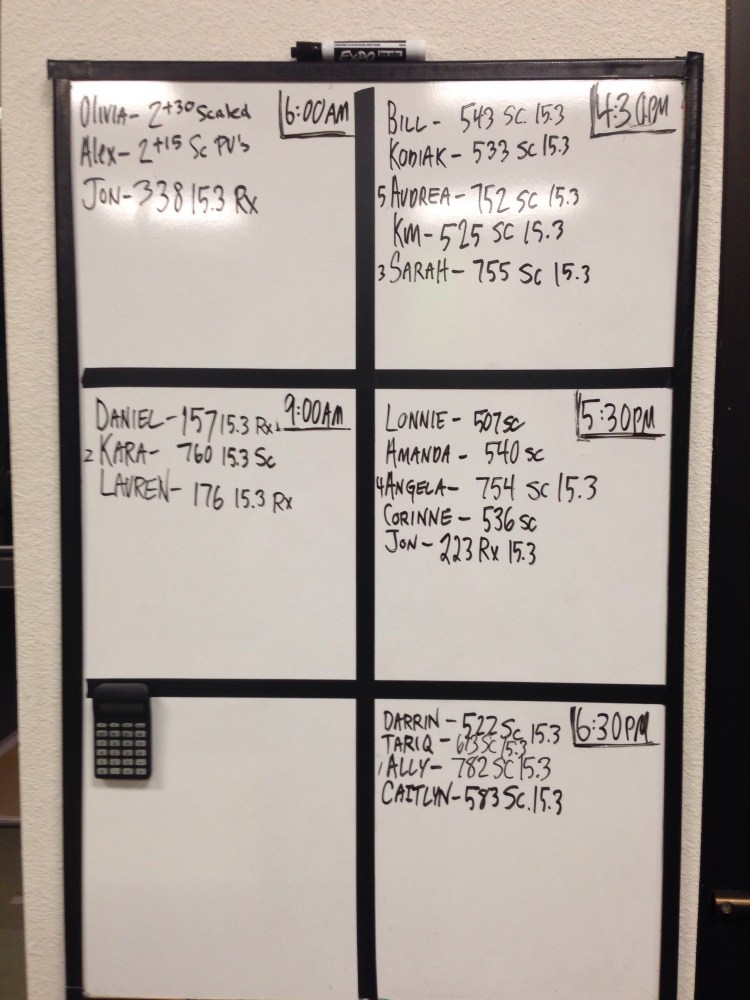 EXPO
6:00AM
OLIVIA- 2+30 Scaled
Alex- 2+15 Sc PU's
JON-338 15.3 Rx
4:30PM
BILL- 543 SC. 15.3
KODIAK- 533 SC 15.3
5 AUDREA- 752 SC 15.3
KIM-525 SC 15.3
3 SARAH- 755 SC 15.3
9:00AM
DANIEL-157 15.3 Rx
2 KARA- 760 15.3 Sc
LAUREN- 176 15.3 Rx
5:30PM
LONNIE- 507 SC
AMANDA- 540 SC
4 ANGELA- 754 SC 15.3
CORINNE- 536 SC
JON- 223 Rx 15.3
6:30PM
DARRIN-522 Sc 15.3
TARIQ- SC 15.3
1 ALLY- 782 SC 15.3
CAITLYN-583 Sc. 15.3